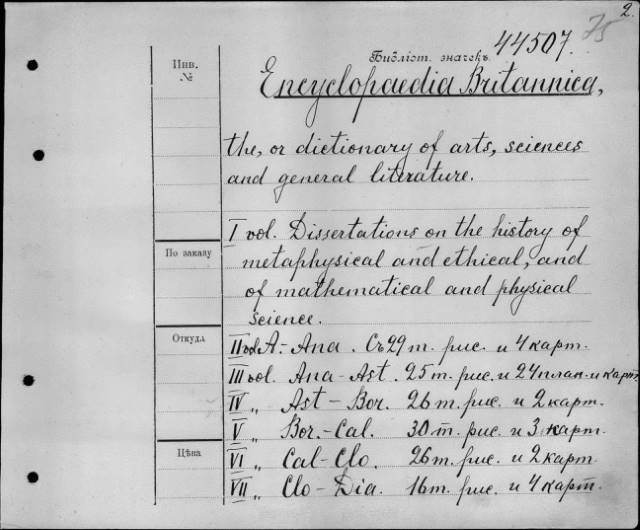 2.
44507. 75
Библіот. значекъ
Инв.
№
Encyclopaedia Britannica,
the, or dictionary of arts, sciences
and general literature.
I vol. Dissertations on the history of
По заказу
metaphysical and ethical, and
of mathematical and physical
science.
Откуда
II vol. A-Ana. Съ 29 т. рис. и 4 карт.
III vol. Ana-Ast. 25 т. рис. и 24 план. и карт.
IV „ Ast-Bor. 26 т. рис. и 2 карт.
V „ Bor.-Cal. 30 т. рис. и 3 карт.
Цѣна
VI „ Cal-Clo. 26 т. рис. и 2 карт.
VII „ Clo-Dia. 16 т. рис. и 4 карт.